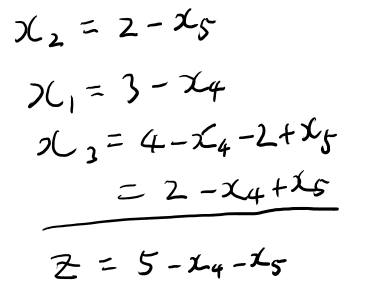 x₂ = 2 - x₅
x₁ = 3 - x₄
x₃ = 4 - x₄ - 2 + x₅
= 2 - x₄ + x₅
z = 5 - x₄ - x₅